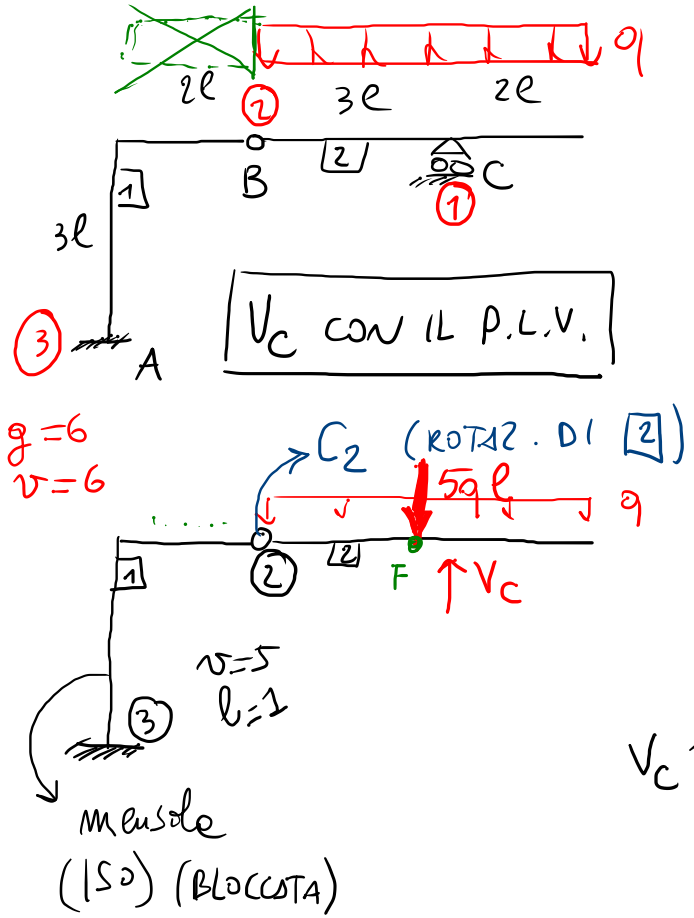 q
2l 3l 2l
2
1 B 2 C
1
3l
3 A
V_C CON IL P.L.V.
g=6
v=6
C_2 (ROTAZ. DI 2)
5ql
q
1 2 2 F V_C
v=5
l=1
3
V_C
mensola
(ISO) (BLOCCATA)